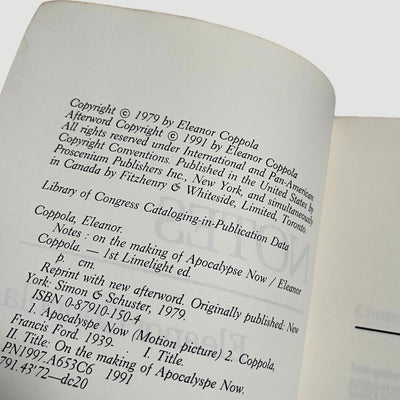 Copyright © 1979 by Eleanor Coppola
Afterword Copyright © 1991 by Eleanor Coppola
All rights reserved under International and Pan-American
Copyright Conventions. Published in the United States by
Proscenium Publishers Inc., New York, and simultaneously
in Canada by Fitzhenry & Whiteside, Limited, Toronto.
Library of Congress Cataloging-in-Publication Data
Coppola, Eleanor.
Notes : on the making of Apocalypse Now / Eleanor
Coppola. — 1st Limelight ed.
p. cm.
Reprint with new afterword. Originally published: New
York: Simon & Schuster, 1979.
ISBN 0-87910-150-4
1. Apocalypse Now (Motion picture) 2. Coppola,
Francis Ford. 1939- . I. Title.
II. Title: On the making of Apocalyspe Now.
PN1997.A653C6 1991
791.43'72—dc20
NOTES